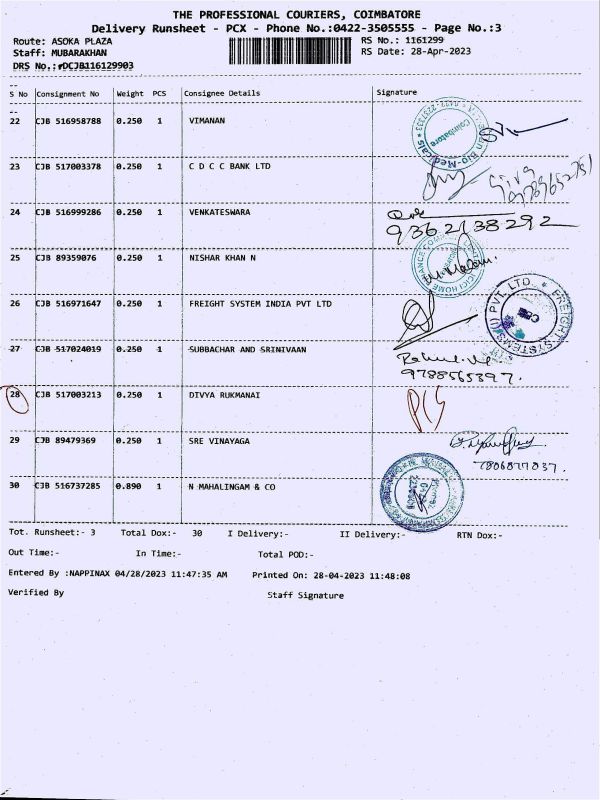 THE PROFESSIONAL COURIERS, COIMBATORE
Delivery Runsheet - PCX - Phone No.:0422-3505555 - Page No.:3
Route: ASOKA PLAZA RS No.: 1161299
Staff: MUBARAKHAN RS Date: 28-Apr-2023
DRS No.:rDCJB116129903
S No Consignment No Weight PCS Consignee Details Signature
22 CJB 516958788 0.250 1 VIMANAN
Coimbatore
23 CJB 517003378 0.250 1 C D C C BANK LTD
24 CJB 516999286 0.250 1 VENKATESWARA
9362138292
25 CJB 89359076 0.250 1 NISHAR KHAN N
26 CJB 516971647 0.250 1 FREIGHT SYSTEM INDIA PVT LTD
FREIGHT SYSTEMS (I) PVT. LTD.
27 CJB 517024019 0.250 1 SUBBACHAR AND SRINIVAAN
9788565397.
28 CJB 517003213 0.250 1 DIVYA RUKMANAI
29 CJB 89479369 0.250 1 SRE VINAYAGA
7806877037.
30 CJB 516737285 0.890 1 N MAHALINGAM & CO
Tot. Runsheet:- 3 Total Dox:- 30 I Delivery:- II Delivery:- RTN Dox:-
Out Time:- In Time:- Total POD:-
Entered By :NAPPINAX 04/28/2023 11:47:35 AM Printed On: 28-04-2023 11:48:08
Verified By Staff Signature